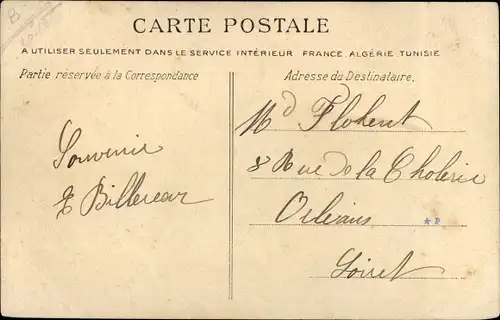 CARTE POSTALE
A UTILISER SEULEMENT DANS LE SERVICE INTÉRIEUR FRANCE, ALGÉRIE, TUNISIE
Partie réservée à la Correspondance
Adresse du Destinataire.
Souvenir
E Billereau
Md Flohent
8 Rue de la Cholerie
Orléans
Loiret